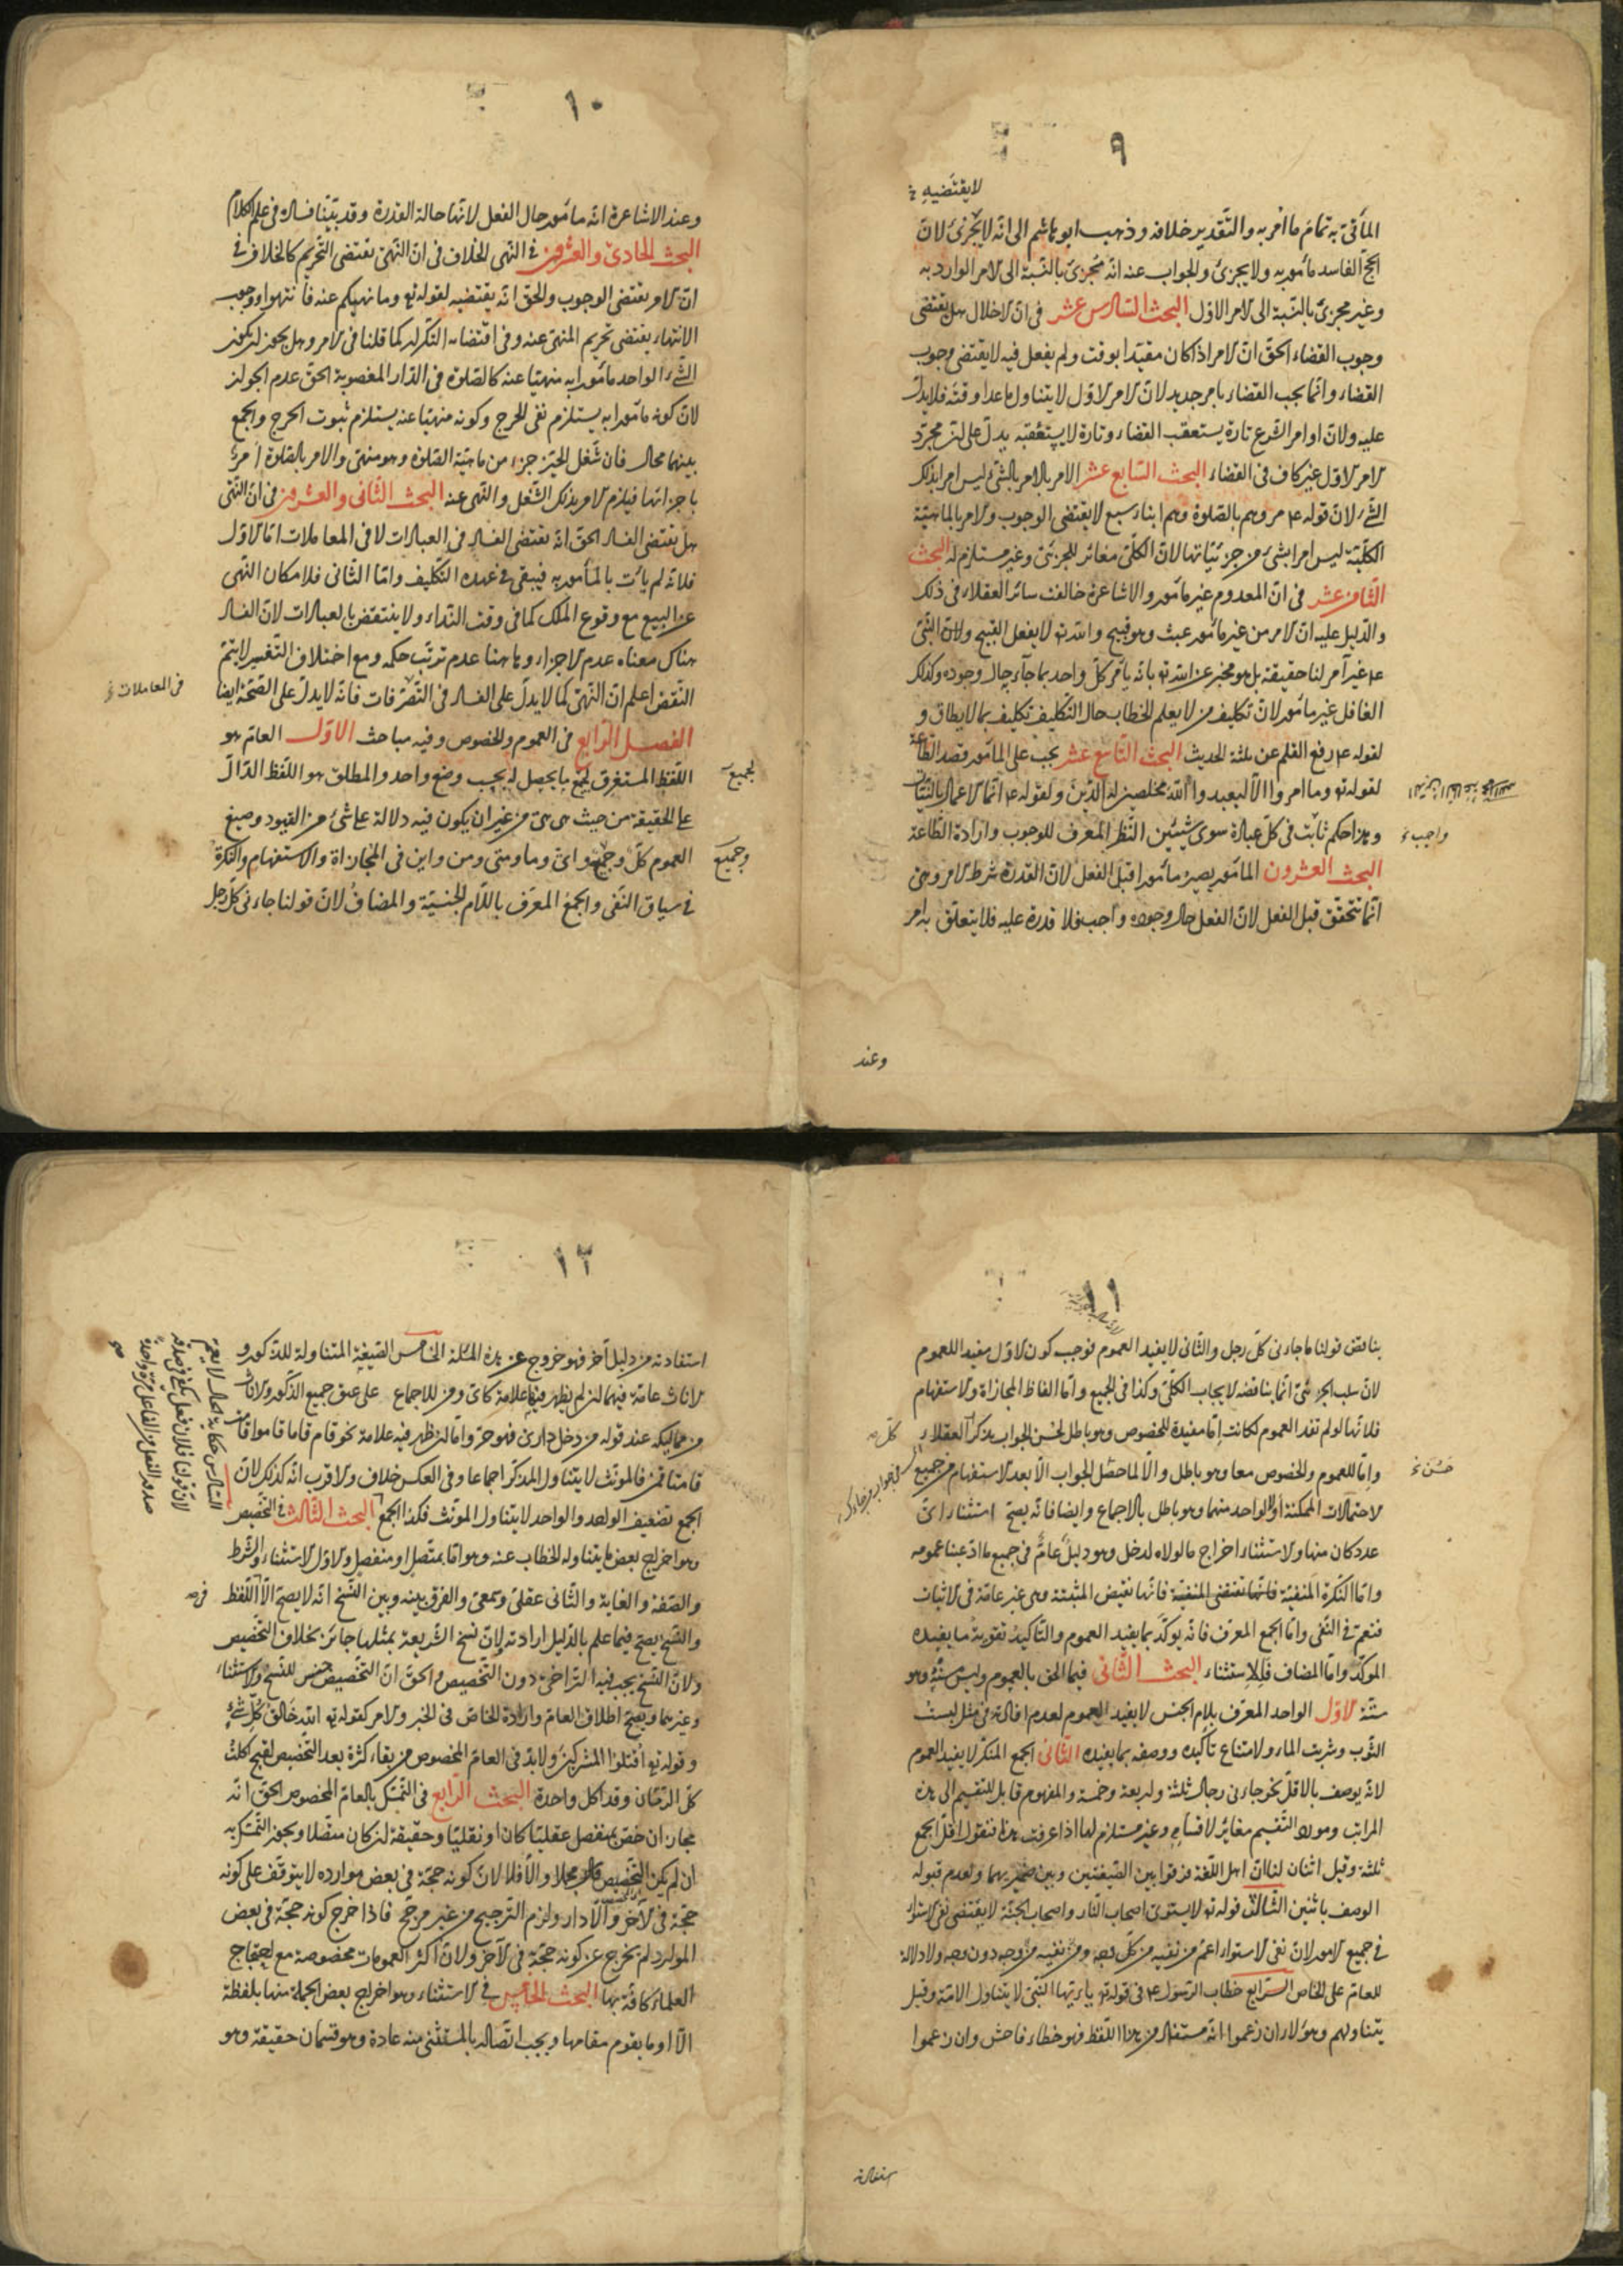 ٩
لا يقتضيه
المأتىّ به تمامَ ما اُمر به والتقدير خلافه وذهب ابو هاشم الى انّه لا يجزئ لانّ
الحجّ الفاسد مأمور به ولا يجزئ والجواب عنه انّه مُجزئ بالنّسبة الى الامر الوارد به
وغير مجزئ بالنّسبة الى الامر الاوّل البحث السّادس عشر فى انّ الاخلال هل يقتضى
وجوب القضاء الحقّ انّ الامر اذا كان مقيّدا بوقت ولم يفعل فيه لا يقتضى وجوب
القضاء وانّما يجب القضاء بامر جديد لانّ الامر الاوّل لا يتناول ما عدا وقته فلا يدلّ
عليه ولانّ اوامر الشّرع تارة يستعقب القضاء وتارة لا يستعقبه يدلّ على انّ مجرّد
الامر الاوّل غير كاف فى القضاء البحث السّابع عشر الامر بالامر بالشّئ ليس امرا بذلك
الشّئ لانّ قوله ع مروهم بالصّلوة وهم ابناء سبع لا يقتضى الوجوب والامر بالماهيّة
الكلّيّة ليس امرا بشئ من جزئيّاتها لانّ الكلّى مغاير للجزئى وغير مستلزم له البحث
الثّامن عشر فى انّ المعدوم غير مأمور والاشاعرة خالفت سائر العقلاء فى ذلك
والدّليل عليه انّ الامر من غير مأمور عبث وهو قبيح والله تع لا يفعل القبيح ولانّ النّبىّ
ع غير آمر لنا حقيقة بل هو مخبر عن الله تع بانّه يأمر كلّ واحد بما جآء به حال وجوده وكذلك
الغافل غير مأمور لانّ تكليف من لا يعلم الخطاب حال التّكليف تكليف بما لا يطاق و
لقوله ع رفع القلم عن ثلثة الحديث البحث التّاسع عشر يجب على المأمور قصد الطّاعة
لقوله تع وما امروا الّا ليعبدوا الله مخلصين له الدّين ولقوله ع انّما الاعمال بالنّيّات
وهذا حكم ثابت فى كلّ عبادة سوى شيئين النّظر المعرف للوجوب وارادة الطّاعة
واجب
البحث العشرون المأمور يصير مأمورا قبل الفعل لانّ القدرة شرط الامر وهى
انّما تتحقّق قبل الفعل لانّ الفعل حال وجوده واجب فلا قدرة عليه فلا يتعلّق به امر
وعند
١٠
وعند الاشاعرة انّه مأمور حال الفعل لانّها حالة القدرة وقد بيّنا فساده فى علم الكلام
البحث الحادى والعشرون فى النّهى الخلاف فى انّ النّهى يقتضى التّحريم كالخلاف فى
انّ الامر يقتضى الوجوب والحقّ انّه يقتضيه لقوله تع وما نهيكم عنه فانتهوا ووجوب
الانتهاء يقتضى تحريم المنهىّ عنه وفى اقتضائه التّكرار كما قلنا فى الامر وهل يجوز ان يكون
الشّئ الواحد مأمورا به منهيّا عنه كالصّلوة فى الدّار المغصوبة الحقّ عدم الجواز
لانّ كونه مأمورا به يستلزم نفى الحرج وكونه منهيّا عنه يستلزم ثبوت الحرج والجمع
بينهما محال فان شغل الحيّز جزء من ماهيّة الصّلوة وهو منهىّ والامر بالصّلوة امر
باجزائها فيلزم الامر بذلك الشّغل والنّهى عنه البحث الثّانى والعشرون فى انّ النّهى
هل يقتضى الفساد الحقّ انّه يقتضى الفساد فى العبادات لا فى المعاملات امّا الاوّل
فلانّه لم يأت بالمأمور به فيبقى فى عهدة التّكليف وامّا الثّانى فلامكان النّهى
عن البيع مع وقوع الملك كما فى وقت النّداء ولا ينتقض بالعبادات لانّ الفساد
هناك معناه عدم الاجزاء وهاهنا عدم ترتّب حكمه ومع اختلاف التّفسير لا يتمّ
النّقض واعلم انّ النّهى كما لا يدلّ على الفساد فى التّصرّفات فانّه لا يدلّ على الصّحّة ايضا
فى المعاملات
الفصل الرّابع فى العموم والخصوص وفيه مباحث الاوّل العامّ هو
اللّفظ المستغرق لجميع ما يصلح له بحسب وضع واحد والمطلق هو اللّفظ الدّالّ
لجميع
على الحقيقة من حيث هى هى من غير ان يكون فيه دلالة على شئ من القيود وصيغ
العموم كلّ وجميع واىّ وما ومتى ومن واين فى المجازاة والاستفهام والنّكرة
وجميع
فى سياق النّفى والجمع المعرّف باللّام الجنسيّة والمضاف لانّ قولنا جاءنى كلّ رجل
١١
يناقض قولنا ما جاءنى كلّ رجل والثّانى لا يفيد العموم فوجب كون الاوّل مفيدا للعموم
لانّ سلب الجزئىّ انّما يناقضه الايجاب الكلّى وكذا فى الجميع وامّا الفاظ المجازاة والاستفهام
فلانّها لو لم تفد العموم لكانت امّا مفيدة للخصوص وهو باطل لحسن الجواب بذكر العقلاء
كلّ
وامّا للعموم والخصوص معا وهو باطل والّا لما حصل الجواب الّا بعد الاستفهام من جميع
حسن
الاحتمالات الممكنة او لا لواحد منهما وهو باطل بالاجماع وايضا فانّه يصحّ استثناء اىّ
عدد كان منها والاستثناء اخراج ما لولاه لدخل وهو دليل عامّ فى جميع ما ادّعينا عمومه
وامّا النّكرة المنفيّة فانّها تقتضى المنفيّة فانّها نقيض المثبتة وهى غير عامّة فى الاثبات
فتعمّ فى النّفى وامّا الجمع المعرّف فانّه يؤكّد بما يفيد العموم والتّأكيد تقوية ما يفيده
المؤكّد وامّا المضاف فللاستثناء البحث الثّانى فيما الحق بالعموم وليس منه وهو
ستّة الاوّل الواحد المعرّف بلام الجنس لا يفيد العموم لعدم افادته فى مثل لبست
الثّوب وشربت الماء ولامتناع تأكيده ووصفه بما يفيده الثّانى الجمع المنكّر لا يفيد العموم
لانّه يوصف بالاقلّ نحو جاءنى رجال ثلثة واربعة وخمسة والمفهوم قابل للتّقسيم الى هذه
المراتب ومورد التّقسيم مغاير لاقسامه وغير مستلزم لها اذا عرفت هذا فنقول اقلّ الجمع
ثلثة وقيل اثنان لنا انّ اهل اللّغة فرّقوا بين الصّيغتين وبين ضميريهما ولعدم قبوله
الوصف باثنين الثّالث قوله تع لا يستوى اصحاب النّار واصحاب الجنّة لا يقتضى نفى الاستواء
فى جميع الامور لانّ نفى الاستواء اعمّ من نفيه من كلّ وجه ومن نفيه من وجه دون وجه ولا دلالة
للعامّ على الخاصّ الرّابع خطاب الرّسول ع فى قوله تع يا ايّها النّبىّ لا يتناول الامّة وقيل
يتناولهم وهؤلاء ان زعموا انّه مستفاد من هذا اللّفظ فهو خطاء فاحش وان زعموا
استفادته
١٢
استفادته من دليل آخر فهو خروج عن هذه المسئلة الخامس الصّيغة المتناولة للذّكور و
الاناث عامّة فيهما ان لم يظهر فيها علامة كاىّ ومن للاجماع على عتق جميع الذّكور والاناث
من مماليكه عند قوله من دخل دارى فهو حرّ وامّا ان ظهر فيه علامة نحو قام قاما قاموا قامت
قامتا قمن فالمؤنّث لا يتناول المذكّر اجماعا وفى العكس خلاف والاقرب انّه كذلك لانّ
الجمع تضعيف الواحد والواحد لا يتناول المؤنّث فكذا الجمع البحث الثّالث فى التّخصيص
وهو اخراج بعض ما يتناوله الخطاب عنه وهو امّا بمتّصل او منفصل والاوّل الاستثناء والشّرط
والصّفة والغاية والثّانى عقلىّ وسمعىّ والفرق بينه وبين النّسخ انّه لا يصحّ الّا اللّفظ
فى
والنّسخ يصحّ فيما علم بالدّليل ارادته لانّ نسخ الشّريعة بمثلها جائز بخلاف التّخصيص
ولانّ النّسخ يجب فيه التّراخى دون التّخصيص والحقّ انّ التّخصيص جنس للنّسخ والاستثناء
وغيرهما ويصحّ اطلاق العامّ وارادة الخاصّ فى الخبر والامر كقوله تع الله خالق كلّ شئ
وقوله تع اقتلوا المشركين ولا بدّ فى العامّ المخصوص من بقاء كثرة بعد التّخصيص لقبح اكلت
كلّ الرّمّان وقد اكل واحدة البحث الرّابع فى التّمسّك بالعامّ المخصوص الحقّ انّه
مجاز ان خصّ بمنفصل عقليّا كان او نقليّا وحقيقة ان كان متّصلا ويجوز التّمسّك به
ان لم يكن التّخصيص مجملا والّا فلا لانّ كونه حجّة فى بعض موارده لا يتوقّف على كونه
حجّة فى الآخر والّا دار ولزم التّرجيح من غير مرجّح فاذا خرج كونه حجّة فى بعض
الموارد لم يخرج عن كونه حجّة فى الآخر ولانّ اكثر العمومات مخصوصة مع احتجاج
العلماء كافّة بها البحث الخامس فى الاستثناء وهو اخراج بعض الجملة منها بلفظة
الّا او ما يقوم مقامها ويجب اتّصاله بالمستثنى منه عادة وهو قسمان حقيقة وهو
السّادس حكاية الحال لا يعمّ
لانّ قولنا فلان فعل يكفى فى صدقه
صدور الفعل من الفاعل مرّة واحدة
صح